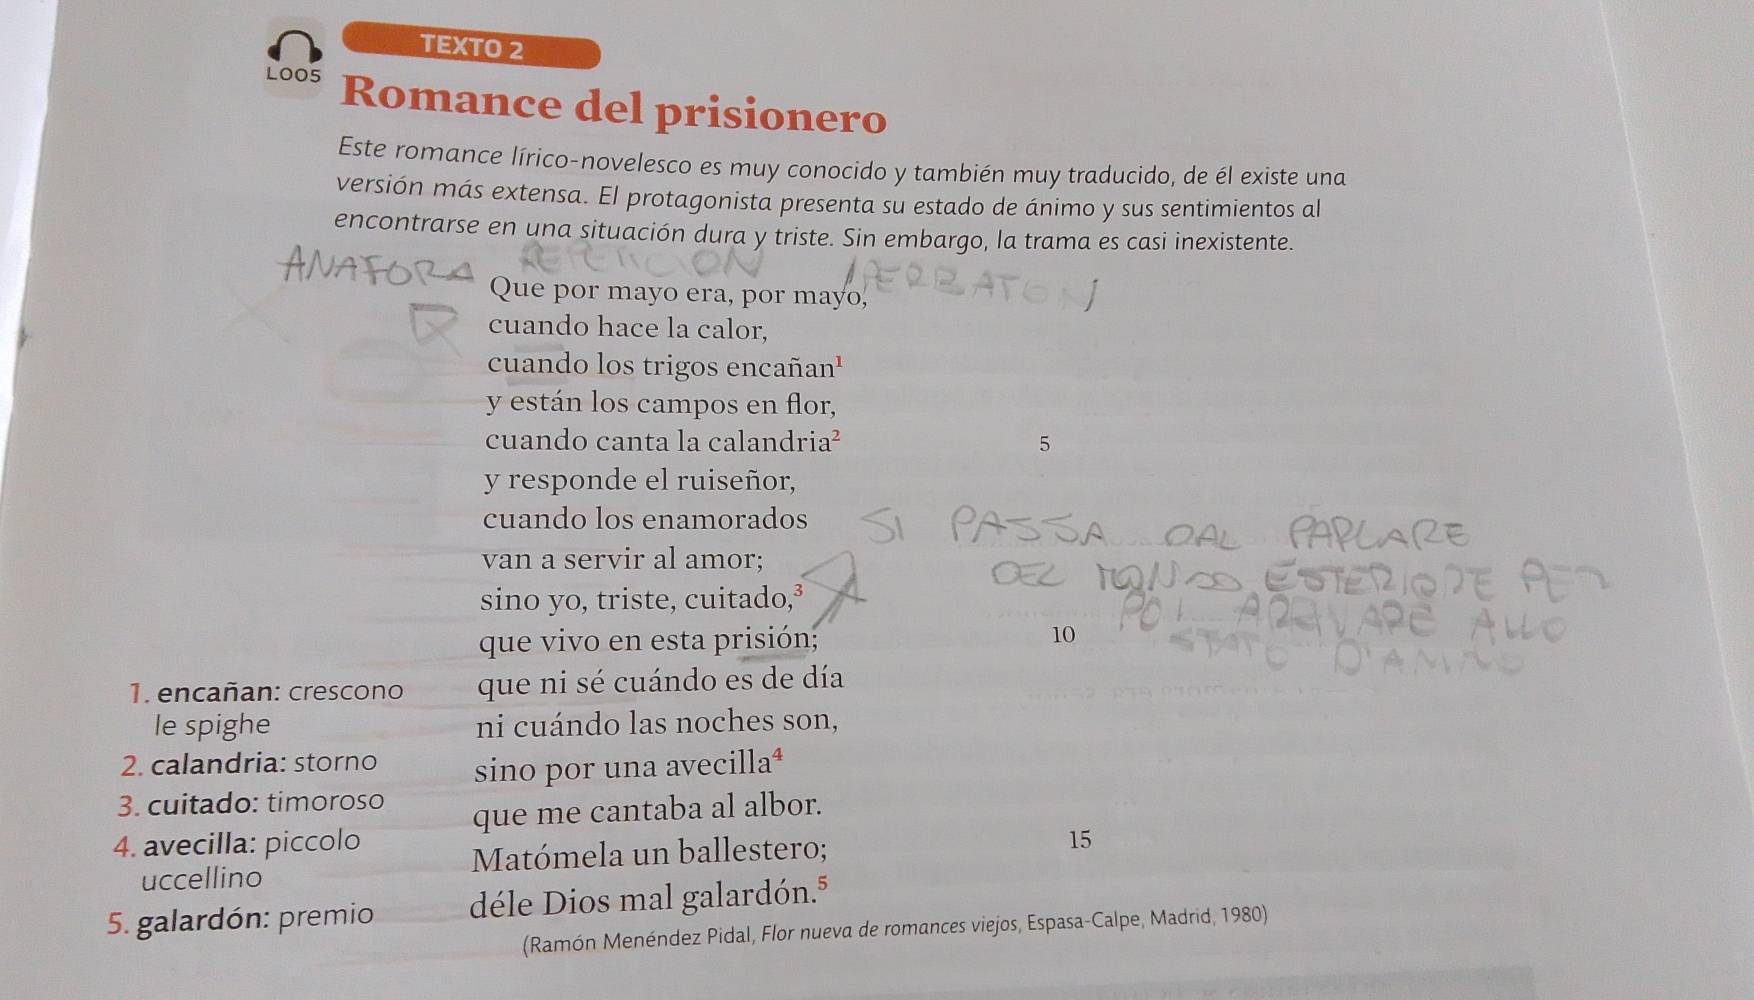 LOO5
TEXTO 2
Romance del prisionero
Este romance lírico-novelesco es muy conocido y también muy traducido, de él existe una
versión más extensa. El protagonista presenta su estado de ánimo y sus sentimientos al
encontrarse en una situación dura y triste. Sin embargo, la trama es casi inexistente.
ANAFORA REPETICION IPERBATON
Que por mayo era, por mayo,
cuando hace la calor,
cuando los trigos encañan¹
y están los campos en flor,
cuando canta la calandria² 5
y responde el ruiseñor,
cuando los enamorados
van a servir al amor;
sino yo, triste, cuitado,³
que vivo en esta prisión; 10
que ni sé cuándo es de día
ni cuándo las noches son,
sino por una avecilla⁴
que me cantaba al albor.
Matómela un ballestero; 15
déle Dios mal galardón.⁵
(Ramón Menéndez Pidal, Flor nueva de romances viejos, Espasa-Calpe, Madrid, 1980)
SI PASSA DAL PARLARE
DEL MONDO ESTERIORE PER
POI ARRIVARE ALLO
STATO D'ANIMO
1. encañan: crescono
le spighe
2. calandria: storno
3. cuitado: timoroso
4. avecilla: piccolo
uccellino
5. galardón: premio